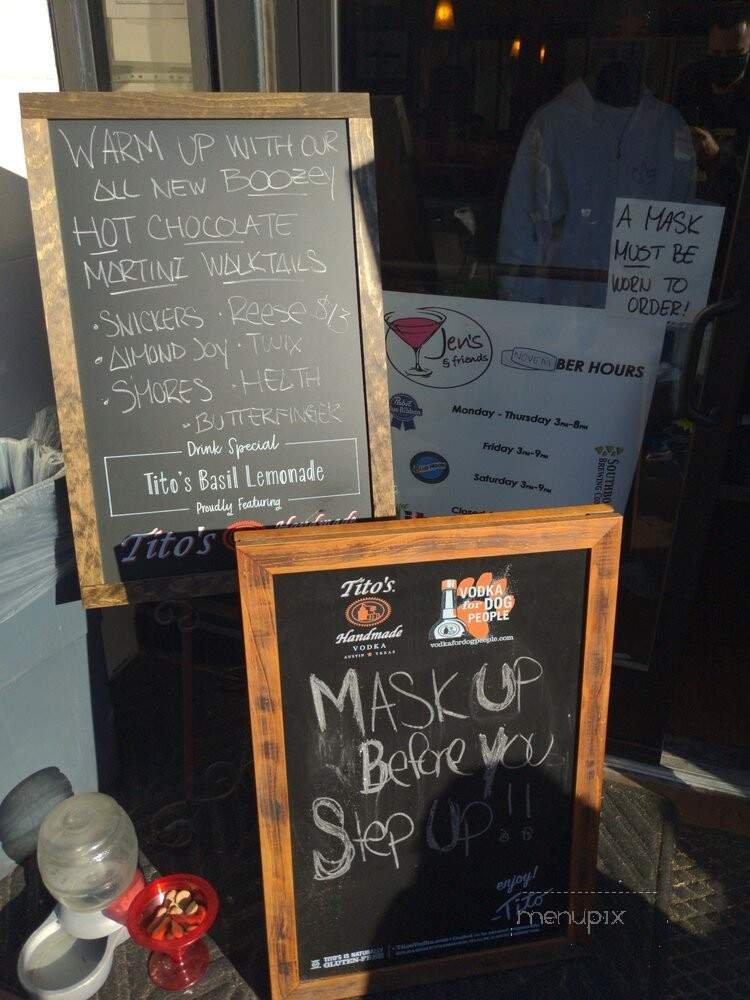 WARM UP WITH OUR
ALL NEW BOOZEY
HOT CHOCOLATE
MARTINI WALKTAILS
• SNICKERS • REESE $13
• ALMOND JOY • TWIX
• S'MORES • HEATH
• BUTTERFINGER
Drink Special
Tito's Basil Lemonade
Proudly Featuring
Tito's Handmade
A MASK
MUST BE
WORN TO
ORDER!
Jen's
& friends
NOVEMBER HOURS
Pabst
Blue Ribbon
Monday - Thursday 3PM-8PM
Friday 3PM-9PM
BLUE MOON
Saturday 3PM-9PM
Closed
Tito's
Handmade
VODKA
AUSTIN ★ TEXAS
VODKA
for DOG
PEOPLE
vodkafordogpeople.com
MASK UP
Before you
Step UP!!
enjoy!
-Tito
TITO'S IS NATURALLY
GLUTEN-FREE
menupix